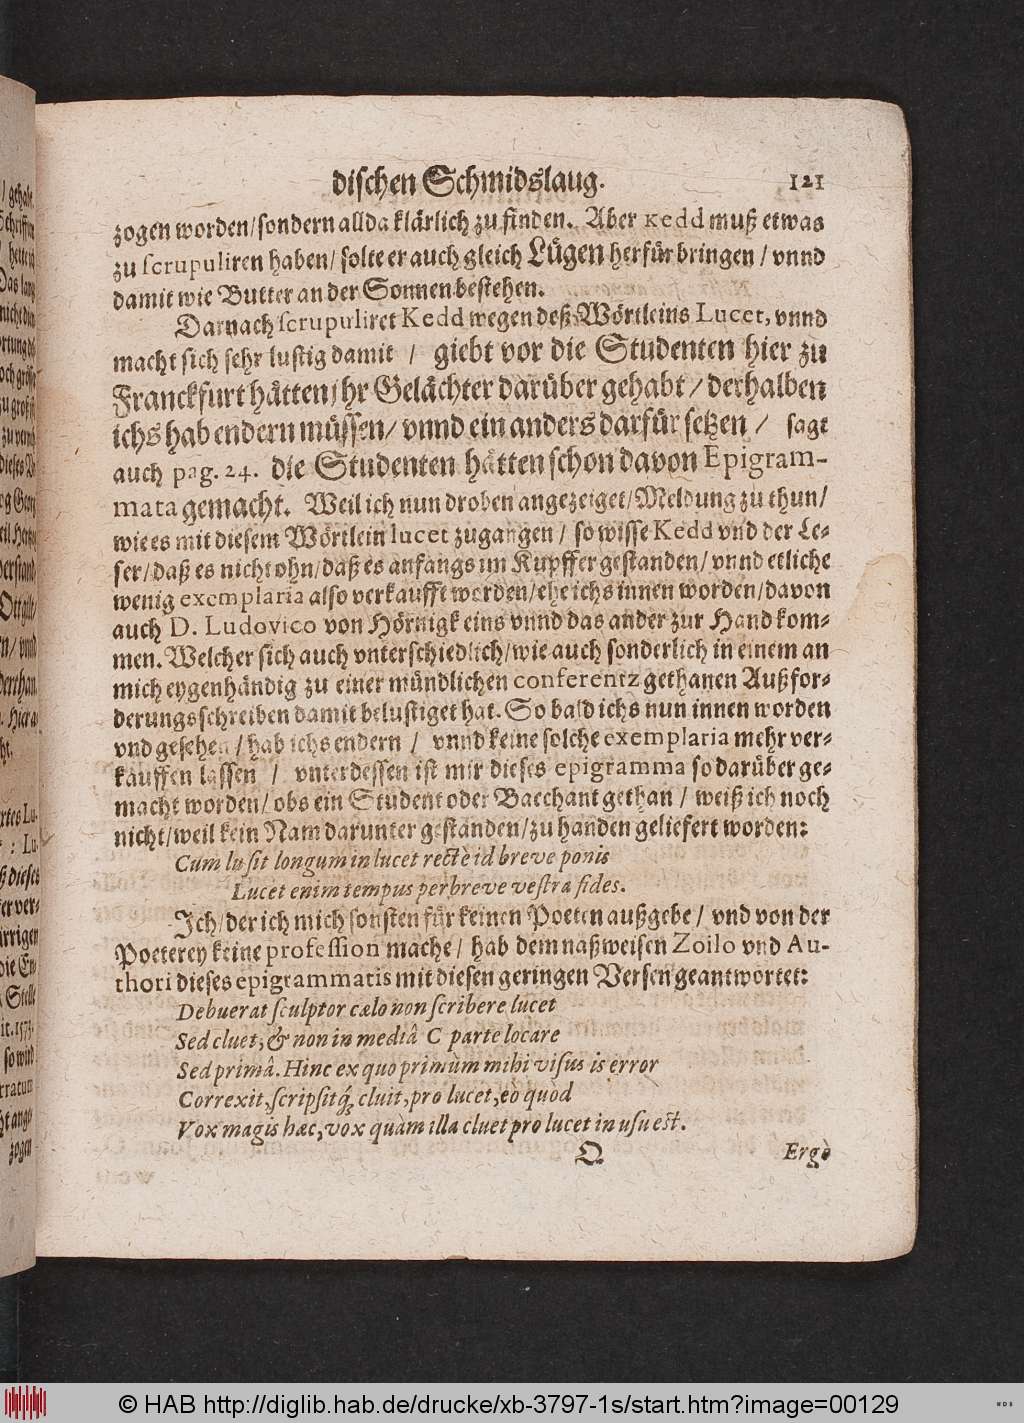 dischen Schmidslaug. 121
zogen worden/sondern allda klärlich zu finden. Aber Kedd muß etwas
zu scrupuliren haben/ solte er auch gleich Lügen herfür bringen / vnnd
damit wie Butter an der Sonnen bestehen.
Darnach scrupuliret Kedd wegen deß Wörtleins Lucet, vnnd
macht sich sehr lustig damit / giebt vor die Studenten hier zu
Franckfurt hätten jhr Gelächter darüber gehabt / derhalben
ichs hab endern müssen/ vnnd ein anders darfür setzen / sagt
auch pag. 24. die Studenten hätten schon davon Epigram-
mata gemacht. Weil ich nun droben angezeiget/Meldung zu thun/
wie es mit diesem Wörtlein lucet zugangen / so wisse Kedd vnd der Le-
ser/daß es nicht ohn/daß es anfangs im Kupffer gestanden/ vnnd etliche
wenig exemplaria also verkaufft worden/ehe ichs innen worden/davon
auch D. Ludovico von Hörnigk eins vnnd das ander zur Hand kom-
men. Welcher sich auch vnterschiedlich/wie auch sonderlich in einem an
mich eygenhändig zu einer mündlichen conferentz gethanen Außfor-
derungsschreiben damit belustiget hat. So bald ichs nun innen worden
vnd gesehen / hab ichs endern / vnnd keine solche exemplaria mehr ver-
kauffen lassen / vnterdessen ist mir dieses epigramma so darüber ge-
macht worden/ obs ein Student oder Bacchant gethan / weiß ich noch
nicht/weil kein Nam darunter gestanden/zu handen geliefert worden:
Cum lusit longum in lucet rectè id breve ponis
Lucet enim tempus perbreve vestra fides.
Ich/der ich mich sonsten für keinen Poeten außgebe / vnd von der
Poeterey keine profession mache/ hab dem naßweisen Zoilo vnd Au-
thori dieses epigrammatis mit diesen geringen Versen geantwortet:
Debuerat sculptor cælo non scribere lucet
Sed cluet, & non in mediâ C parte locare
Sed primâ. Hinc ex quo primùm mihi visus is error
Correxit, scripsitq́; cluit, pro lucet, eò quòd
Vox magis hæc, vox quàm illa cluet pro lucet in usu est.
Q Ergò
/ gehabt
Schrifften
Das lang
nicht
zu groß
dieses
Ott
vnd
ht.
dieses
ver-
die
Stelle
it. 1573.
so wird
zogen
© HAB http://diglib.hab.de/drucke/xb-3797-1s/start.htm?image=00129